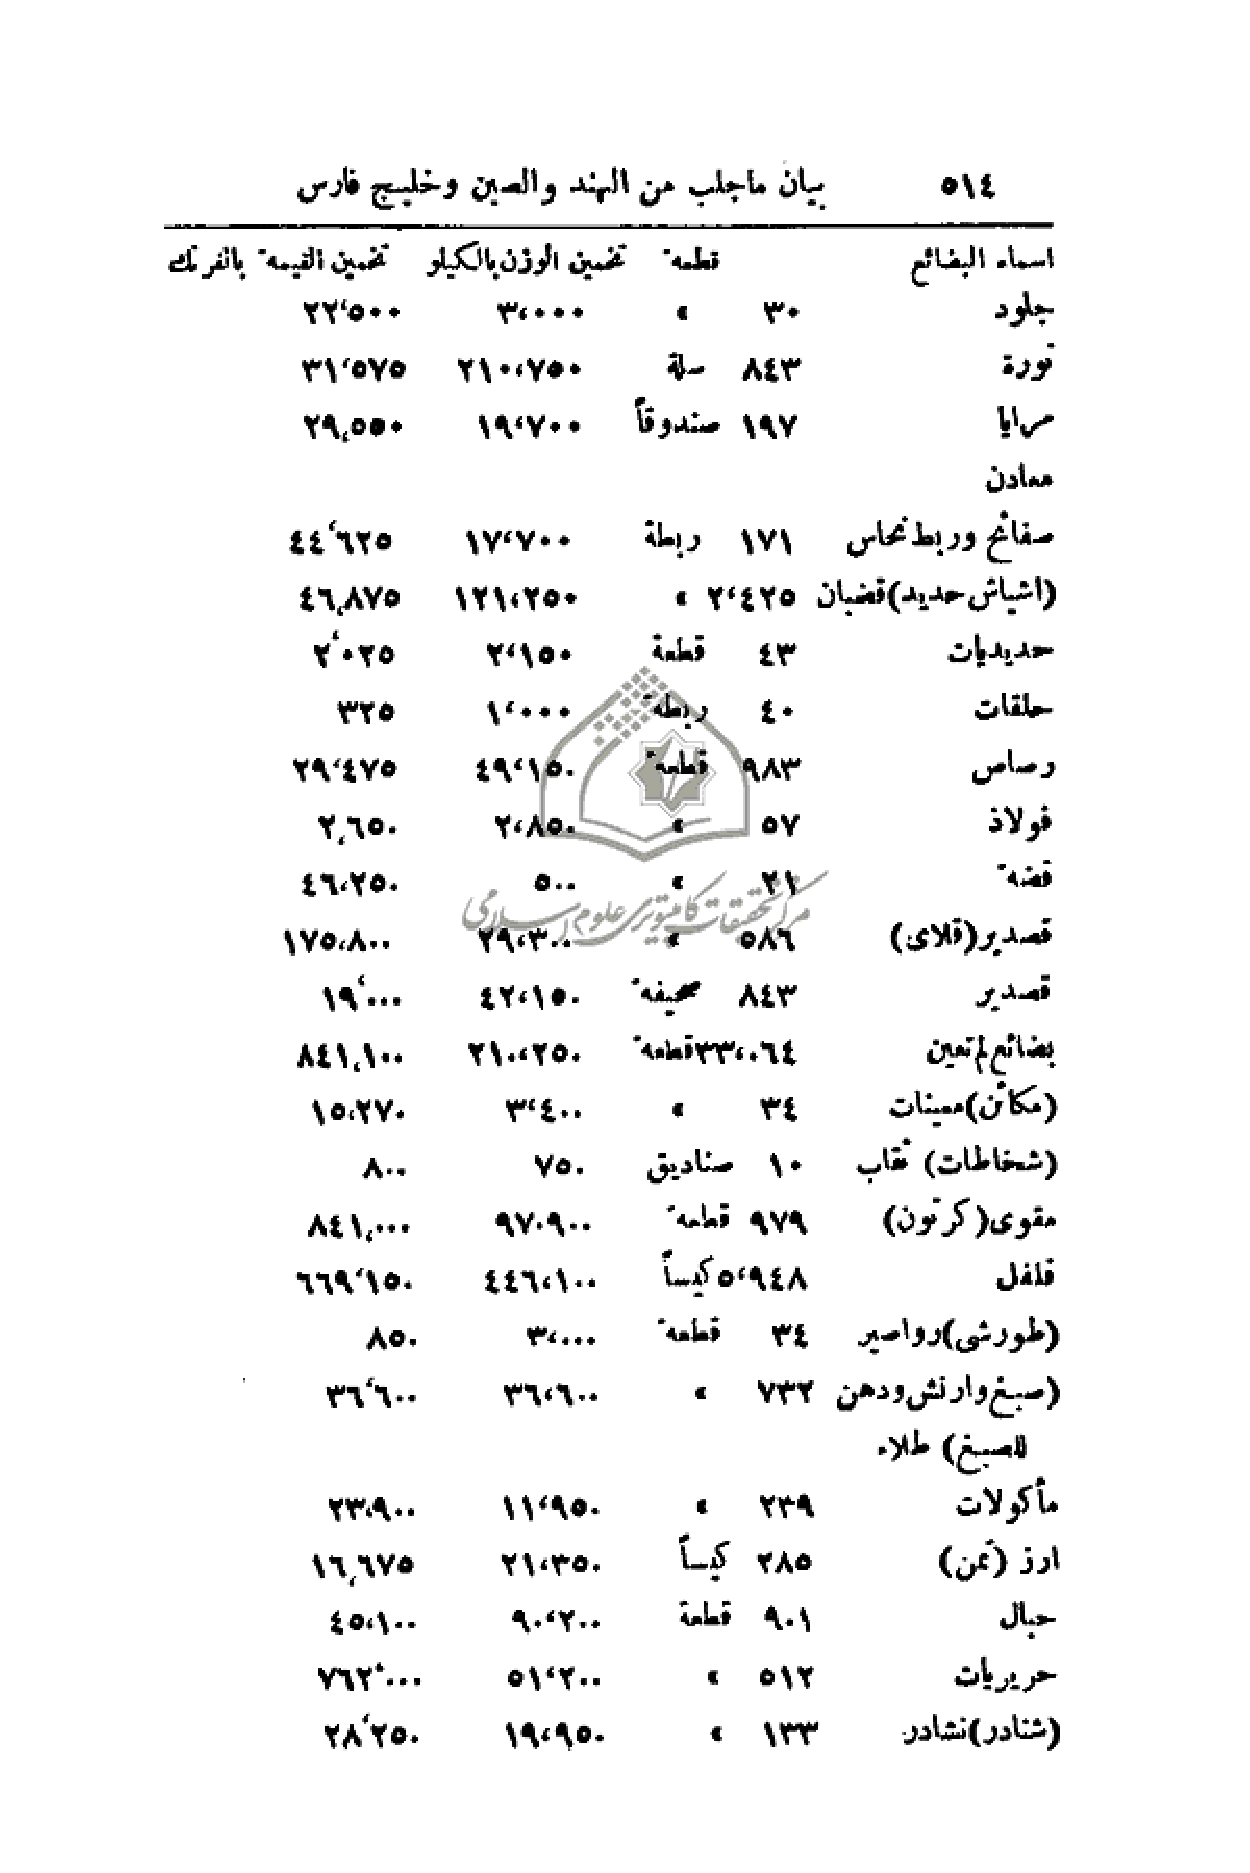 ٥١٤ بيان ماجلب من الهند والصين وخليج فارس
اسماء البضائع قطعة تخمين الوزن بالكيلو تخمين القيمة بالفرنك
جلود ٣٠ » ٣،٠٠٠ ٢٢،٥٠٠
نورة ٨٤٣ سلة ٢١٠،٧٥٠ ٣١،٥٧٥
مرايا ١٩٧ صندوقاً ١٩،٧٠٠ ٢٩،٥٥٠
معادن
صفائح وربط نحاس ١٧١ ربطة ١٧،٧٠٠ ٤٤،٦٢٥
(اشياش حديد)قضبان ٢،٤٢٥ » ١٢١،٢٥٠ ٤٦،٨٧٥
حديديات ٤٣ قطعة ٢،١٥٠ ٢،٠٢٥
حلقات ٤٠ ربطة ١،٠٠٠ ٣٢٥
رصاص ٩٨٣ قطعة ٤٩،١٥٠ ٢٩،٤٧٥
فولاذ ٥٧ » ٢،٨٥٠ ٢،٦٥٠
فضة ٢١ » ٥٠٠ ٤٦،٢٥٠
مركز تحقيقات كامپيوترى علوم اسلامى
قصدير(قلاى) ٥٨٦ » ٢٩،٣٠٠ ١٧٥،٨٠٠
قصدير ٨٤٣ صحيفة ٤٢،١٥٠ ١٩،٠٠٠
بضائع لم تعين ٣٣،٠٦٤ قطعة ٢١٠،٢٥٠ ٨٤١،١٠٠
(مكائن)معينات ٣٤ » ٣،٤٠٠ ١٥،٢٧٠
(شخاطات) ثقاب ١٠ صناديق ٧٥٠ ٨٠٠
مقوى(كرتون) ٩٧٩ قطعة ٩٧،٩٠٠ ٨٤١،٠٠٠
فلفل ٥،٩٤٨ كيساً ٤٤٦،١٠٠ ٦٦٩،١٥٠
(طورشى)رواصير ٣٤ قطعة ٣،٠٠٠ ٨٥٠
(صبغ وارنش ودهن ٧٣٢ » ٣٦،٦٠٠ ٣٦،٦٠٠
للصبغ) طلاء
مأكولات ٢٣٩ » ١١،٩٥٠ ٢٣،٩٠٠
ارز (تمن) ٢٨٥ كيساً ٢١،٣٥٠ ١٦،٦٧٥
حبال ٩٠١ قطعة ٩٠،٢٠٠ ٤٥،١٠٠
حريريات ٥١٢ » ٥١،٢٠٠ ٧٦٢،٠٠٠
(شنادر)نشادر ١٣٣ » ١٩،٩٥٠ ٢٨،٢٥٠